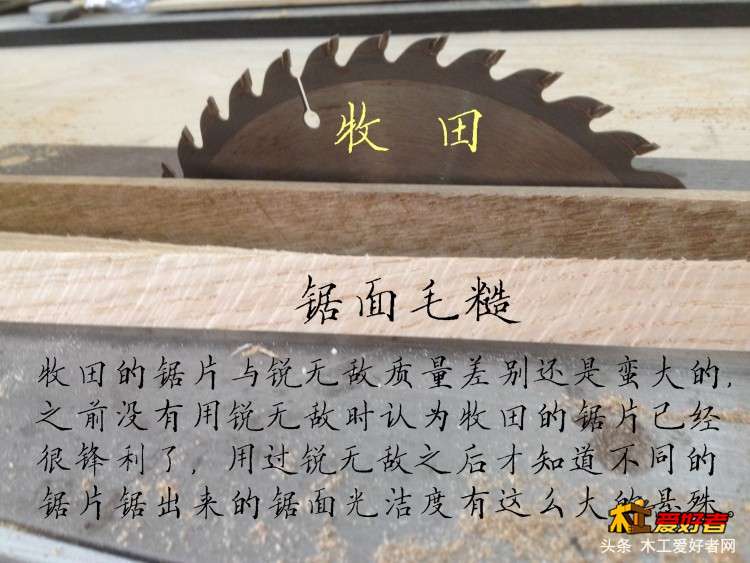 牧 田
锯面毛糙
牧田的锯片与锐无敌质量差别还是蛮大的,
之前没有用锐无敌时认为牧田的锯片已经
很锋利了, 用过锐无敌之后才知道不同的
锯片锯出来的锯面光洁度有这么大的悬殊
木工爱好者®
头条 木工爱好者网